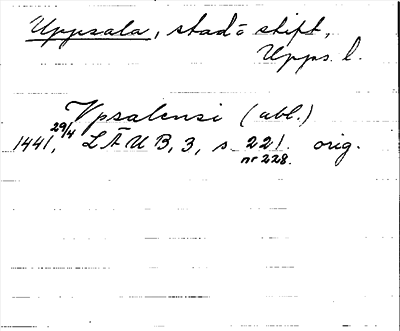 Uppsala, stad o stift,
Upps. l.
Vpsalensi (abl.)
1441, 29/4 LÄUB, 3, s. 221. orig.
nr 228.